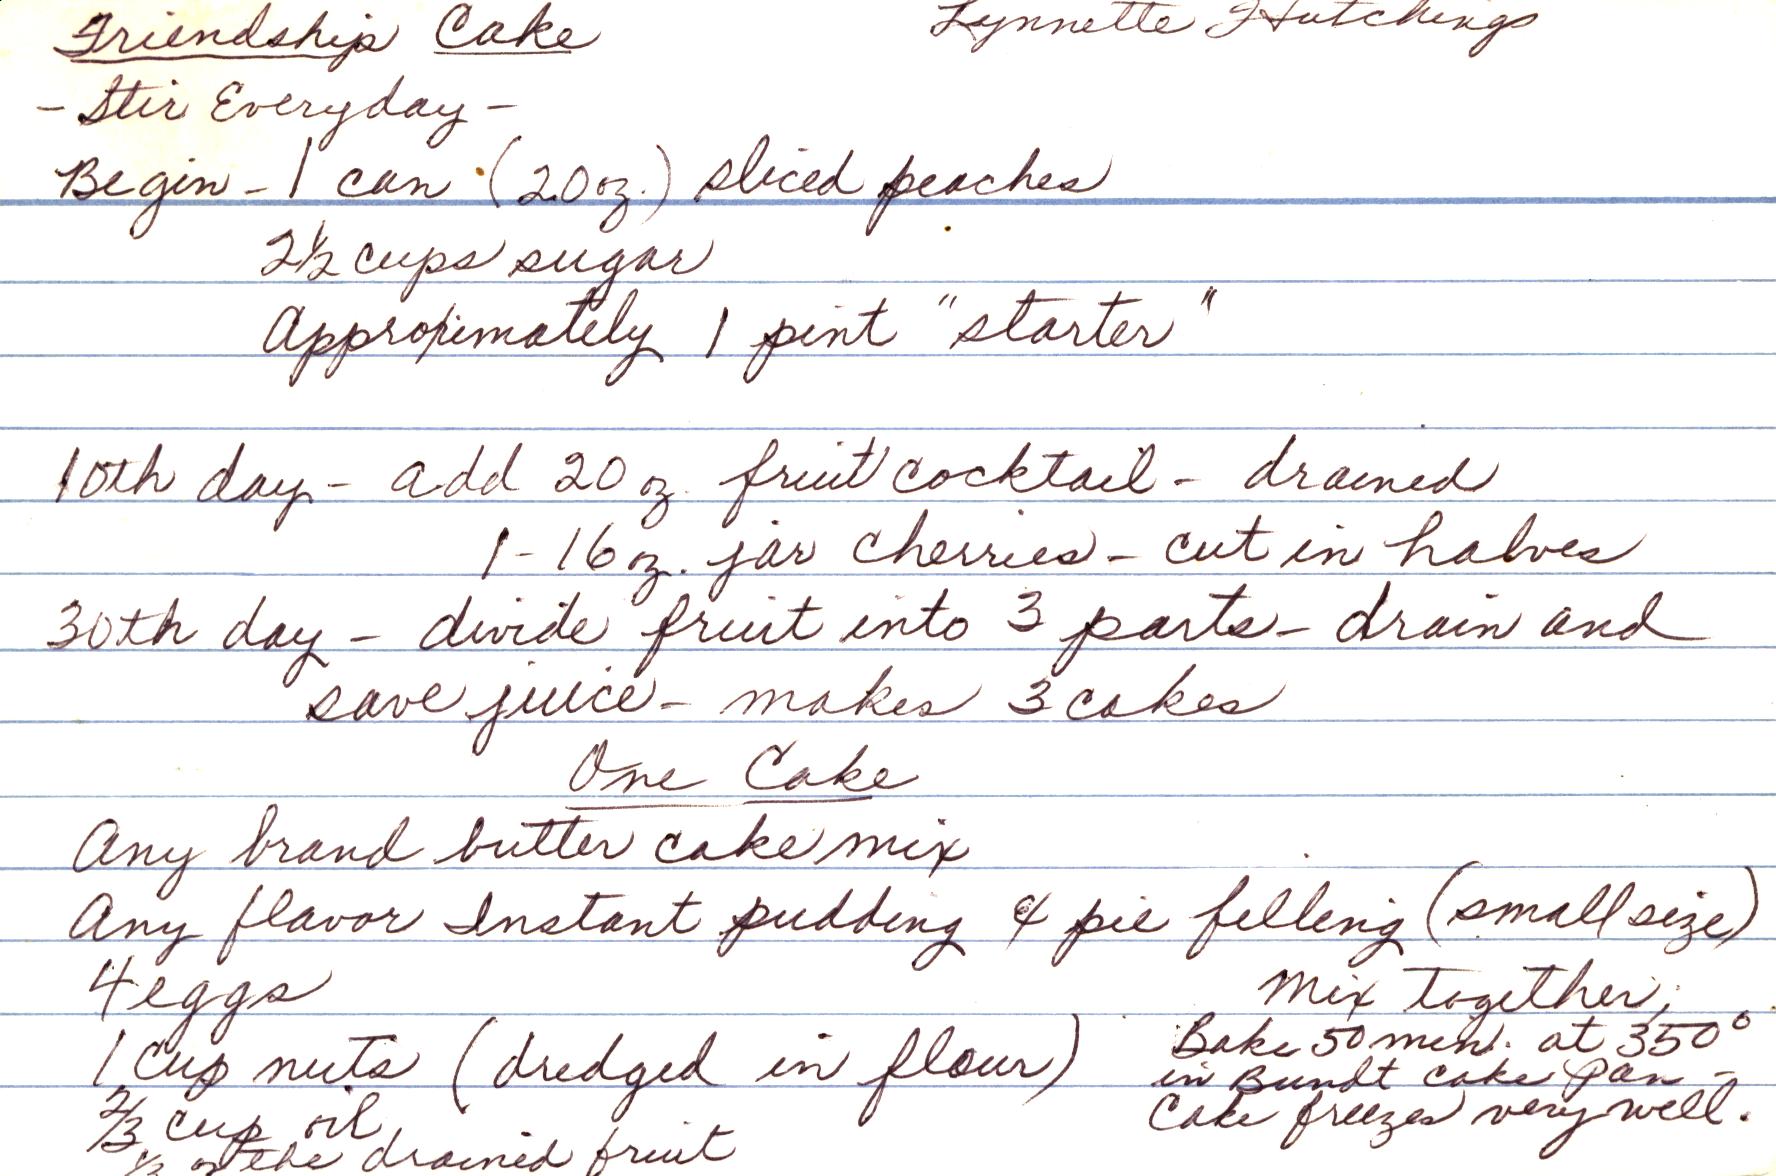 Friendship Cake
Lynnette Hutchings
- Stir Everyday -
Begin - 1 can (20 oz.) sliced peaches
2 1/2 cups sugar
Approximately 1 pint "starter"
10th day - add 20 oz. fruit cocktail - drained
1 - 16 oz. jar cherries - cut in halves
30th day - divide fruit into 3 parts - drain and
save juice - makes 3 cakes
One Cake
Any brand butter cake mix
Any flavor Instant pudding & pie filling (small size)
4 eggs
1 cup nuts (dredged in flour)
2/3 cup oil
1/3 of the drained fruit
Mix together,
Bake 50 min. at 350°
in Bundt cake pan -
Cake freezes very well.